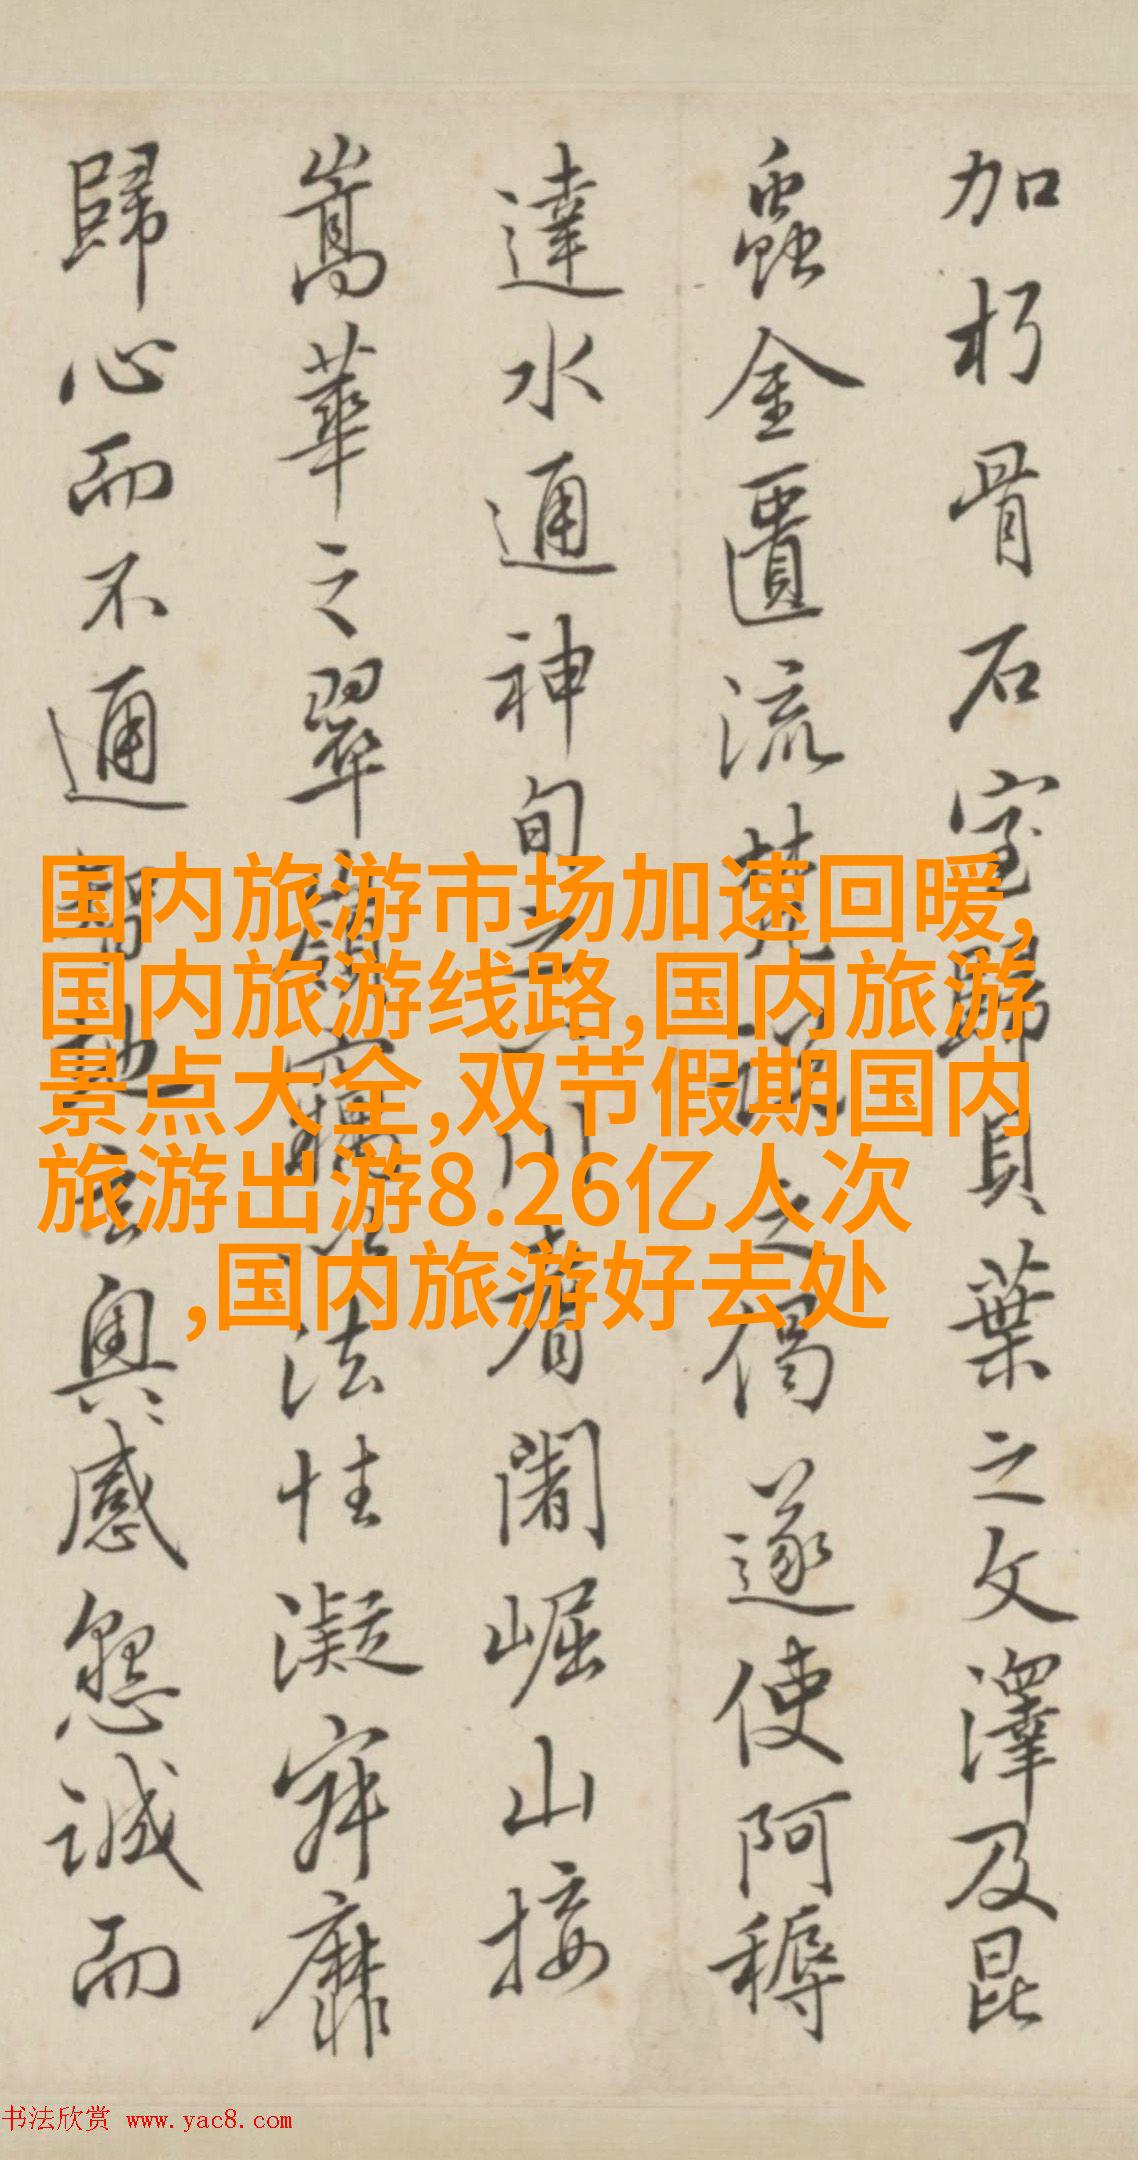 加朽骨石室歸貝葉之文澤及昆
蟲金匱流梵說之偈遂使阿耨
達水通神甸之八川耆闍崛山接
嵩華之翠嶺竊以法性凝寂靡
歸心而不通智地玄奧感懇誠而
国内旅游市场加速回暖,
国内旅游线路,国内旅游
景点大全,双节假期国内
旅游出游8.26亿人次
,国内旅游好去处
书法欣赏 www.yac8.com